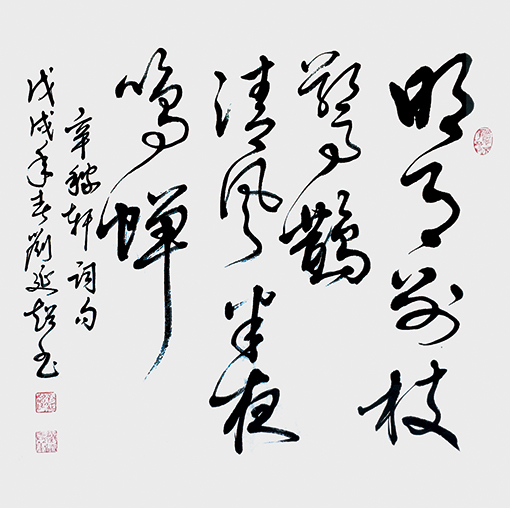 明月别枝
惊鹊
清风半夜
鸣蝉
辛稼轩词句
戊戌年春刘延超书